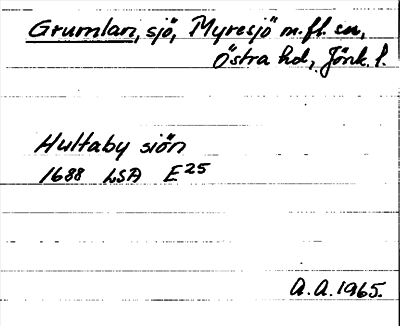 Grumlan, sjö, Myresjö m.fl. sn,
Östra hd, Jönk. l.
Hultaby siön
1688 LSA E25
A.A. 1965.